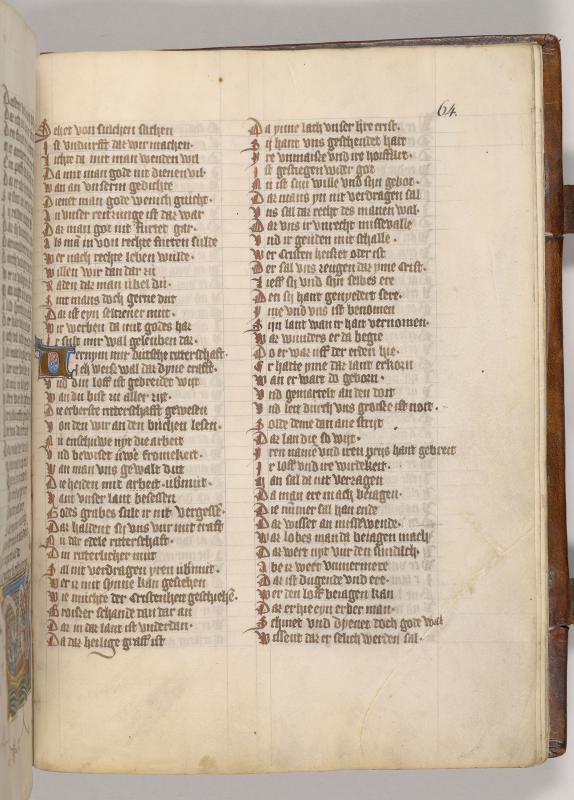 64.
Seher von sulchen sachen
Ist vndurfft daz wir machen.
Ichte da mit man wenden wil
Da mit man gode nit dienen vil.
Wan an vnserm gedichte
Dienet man gode wenich guicht.
An vnser reitzunge ist daz war
Daz man got nit furtet gar.
Als man in von rechte furten sulde
Wer nach rechte leben wulde.
Willen wir dan dar zu
Raden daz man ubel du.
Mit mans doch gerne dut
Daz ist eyn seltzener mut.
Wir werben da mit godes haz
Ir sult mir wal geleuben daz.
Ternym mir dutsche ritterschafft.
Ich weisz wal daz dyne craffte.
Vnd din loff ist gebreidet wijt
Wan du bist zu aller zijt.
Die erberste ritterschafft gewesen
Von den wir an den buchen lesen.
Nu enschuwe nyt die arbeit
Vnd bewiset uwe fromekeit.
Wan man vns gewalt dut
Die heiden mit arbeit ubmut.
Hant vnser lant besessen
Godes grabes sule ir nit vergesse.
Daz haldent sij vns vur mit craft
Nu dar edele ritterschaft.
Din ritterlicher mut
Sal nit verdragen yren ubmut.
Wer iz mit synne kan gesehen
Wie muchte der Cristenheit geschiehe.
Groszer schande dan dar an
Daz in daz lant ist vnderdan.
Da daz heilige graff ist
Da ynne lach vnser hre crist.
Sij hant vns geschendet hart
Ire vnmasze vnd ire houffart.
Ist gestiegen wider got
Nu ist sin wille vnd sijn gebot.
Daz mans yn nit verdragen sal
Vns sal daz recht des manen wal.
Daz vns ir vnrecht missevalle
Vnd ir geuden mit schalle.
Wer Cristen heiszet oder ist
Der sal vns zeugen daz yme Crist.
Lieff sij vnd sijn selbes ere
Den sij hant genyedert sere.
Yme vnd vns ist benomen
Sijn lant wan ir hat vernomen.
Waz wundres er da begie
Do er waz uff der erden hie.
Er hatte yme daz lant erkorn
Wan er wart do geborn.
Vnd gemartelt an den doit
Vnd leit durch vns grosze ist noit.
Solde deme dan ane strijt
Daz lan die so wijt.
Yren name vnd iren prijs hant gebreit
Ir loff vnd ire wirdekeit.
Man sal de nit verzagen
Da man ere mach beiagen.
Die nummer sal han ende
Daz wisset an missewende.
Waz lobes man da beiagen mach
Daz wert nyt vur den sundach.
Aber wert vmmermere
Daz ist dugende vnd ere.
Wer den loff beiagen kan
Daz er hie eyn erber man.
Schinet vnd dienet doch gode wal
Wissent daz er selich werden sal.